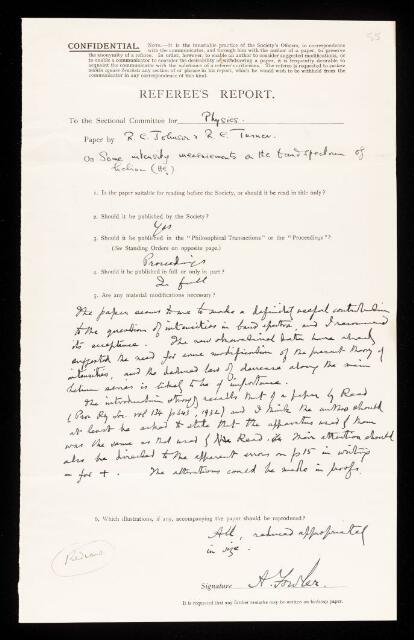 55
CONFIDENTIAL. NOTE.—It is the invariable practice of the Society's Officers, in correspondence
with the communicator, and through him with the author of a paper, to preserve
the anonymity of a referee. In order, however, to enable an author to consider suggested modifications, or
to enable a communicator to consider the desirability of withdrawing a paper, it is frequently desirable to
acquaint the communicator with the substance of a referee's criticisms. The referee is requested to enclose
within square brackets any section of or phrase in his report, which he would wish to be withheld from the
communicator in any correspondence of this kind.
REFEREE'S REPORT.
To the Sectional Committee for Physics.
Paper by R. C. Johnson & R. C. Turner.
On Some intensity measurements on the band spectrum of
helium (He2)
1. Is the paper suitable for reading before the Society, or should it be read in title only?
2. Should it be published by the Society?
Yes
3. Should it be published in the "Philosophical Transactions" or the "Proceedings"?
(See Standing Orders on opposite page.)
Proceedings
4. Should it be published in full or only in part?
In full
5. Are any material modifications necessary?
The paper seems to me to make a definitely useful contribution
to the question of intensities in band spectra, and I recommend
its acceptance. The new observational data have already
suggested the need for some modification of the present theory of
intensities, and the deduced law of decrease along the main
helium series is likely to be of importance.
The introduction strongly recalls that of a paper by Read
(Proc Roy Soc. vol 134 p643, 1932) and I think the authors should
at least be asked to state that the apparatus used by them
was the same as that used by Read. Their attention should
also be directed to the apparent errors on p15 in writing
- for +. The alterations could be made in proofs.
6. Which illustrations, if any, accompanying the paper should be reproduced?
All, reduced appropriately
in size.
Signature A. Fowler.
It is requested that any further remarks may be written on bottom page.